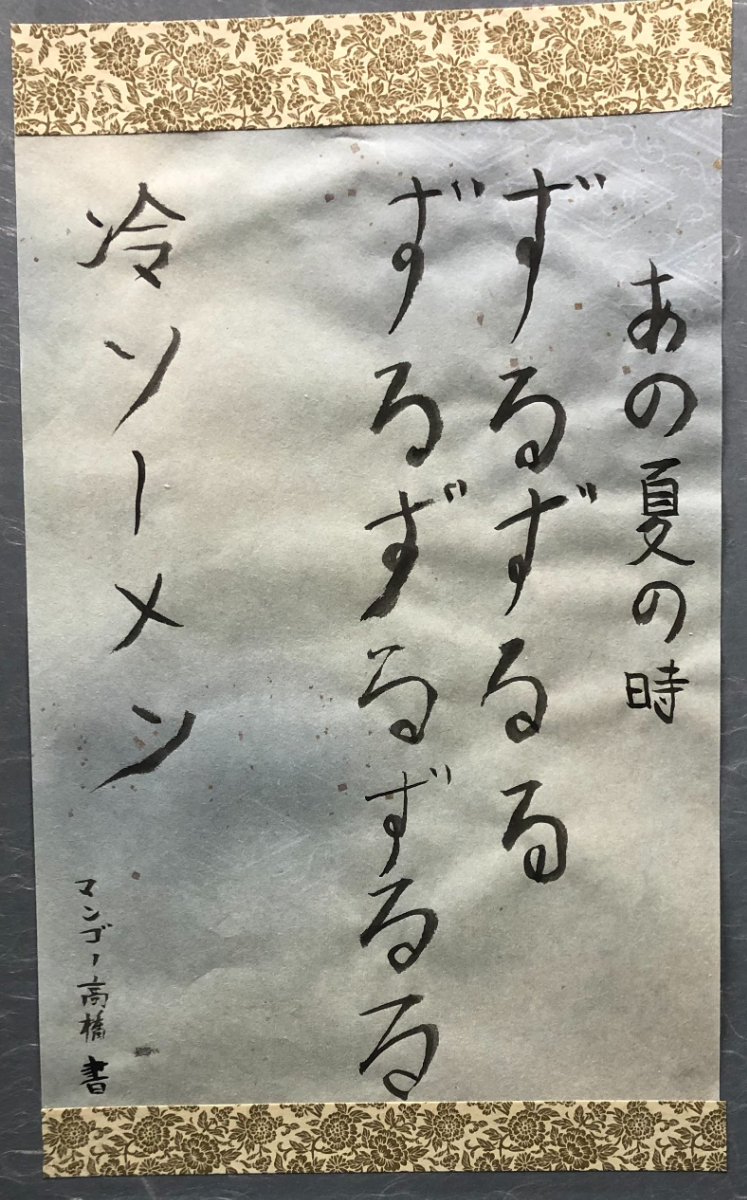 あの夏の時
ずるずるる
ずるずるずるる
冷ソーメン
マンゴー高橋 書